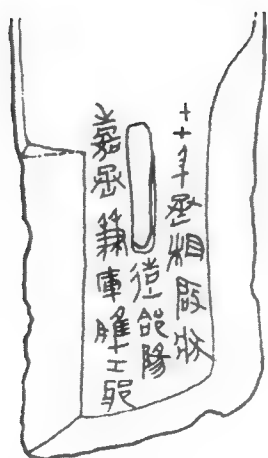 十七年丞相啟狀
造郃陽
嘉丞兼庫脽工邪